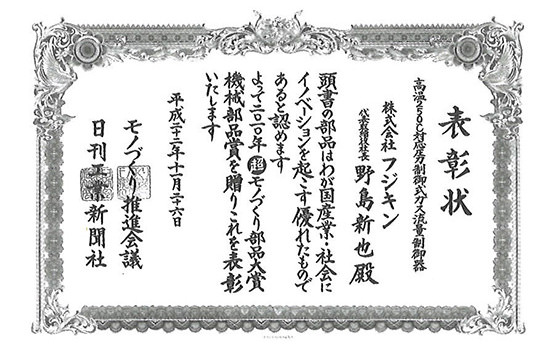 表彰状
高温250℃対応圧力制御式ガス流量制御器
株式会社フジキン
代表取締役社長 野島新也殿
頭書の部品はわが国産業・社会に
イノベーションを起こす優れたもので
あると認めます
よって二〇一〇年超モノづくり部品大賞
機械部品賞を贈りこれを表彰
いたします
平成二十二年十一月二十六日
モノづくり推進会議
日刊工業新聞社